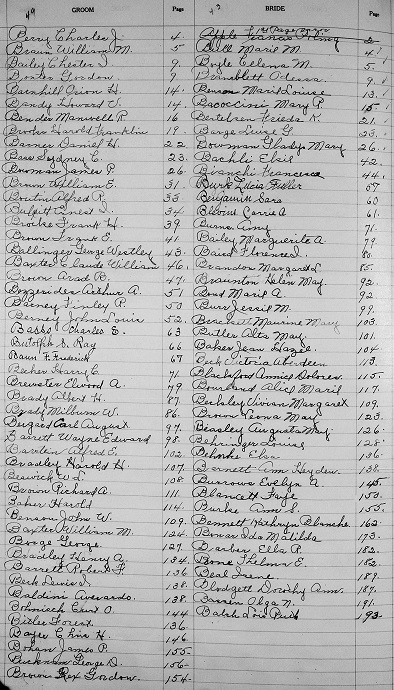 49 GROOM Page BRIDE Page
Berry Charles J. 4.
Braun William M. 5 Bell Marie M. 4
Bailey Chester J. 9. Boyle Ellena M. 5.
Baxter Gordon. 9 Bramblett Odessa. 9.
Barnhill Orion H. 14. Benson Marie Louise 13.
Dandy Howard V. 14. Bacoccini Mary P. 15
Bender Manwell R. 16 Bertelsen Frieda K. 21.
Brooks Harold Franklin 19. Barge Louise G. 23.
Barner Daniel H. 22. Bowman Gladys Mary 26.
Bass Sydney C. 23. Bachli Elsie 42.
Bowman James P. 26. Bianchi Francesca 44.
Brown William E. 31. Burk Zilcia Fuller 57
Boutin Alfred P. 33. Benjamin Sara 60
Bulpitt Ernest J. 34 Blevins Carrie A 61.
Brooke Frank H. 39 Burns Amy 71.
Brown Frank E. 41. Bailey Marguerite A. 79.
Ballinger George Westley 43. Baird Florence J. 80.
Baxter Claude William 46. Brandon Margaret L. 85.
Brown Arad B. 47. Braunton Helen May 92.
Bozarides Arthur A. 51 Bond Marie A. 92
Barney Finley P. 50 Burr Jessie M. 99.
Berney John Louis 52. Maurine May 103.
Basso Charles E. 63 Butler Alta May. 101.
Butolph S. Ray 66 Baker Jean Hazel. 104.
Baun F. Fredrick 67 Beck Victoria Aberdeen 113.
Becker Harry C. 71 Blackford Annie Dolores. 115.
Brewster Elwood A. 79 Bourland Alice Marie 117.
Beady Albert H. 87 Berkeley Vivian Margaret 109.
Brady Milburn W. 86. Brown Leona May 123.
Bugard Carl August 97. Beasley Augusta May. 126.
Barrett Wayne Edward 98. Behringer Louise 128.
Bartlein Alfred E. 102. Behnke Elsa 136.
Bradley Harold H. 107. Bennett Ann Heyden. 138.
Beswick W. L. 108 Burrows Evelyn A 145.
Brown Richard A. 111 Blancett Faye 150.
Baker Harold 114. Burke Ann L. 155.
Benson John W. 109. Bennett Kathryn Blanche 162.
Baxter William M. 124. Bonar Ida Matilda 173.
Booge George 127. Barber Ella P. 182.
Bradley Henry A. 134 Boone Thelma E. 182.
Barrett Robert F. 136 Beal Irene 189.
Beck Lewis J. 138 Blodgett Dorothy Ann. 187.
Baldini Awerardo. 138. Bassen Olga N. 191.
Bohnieck Cent O. 144 Balch Lois Ruib 193.
Bixler Forest 136.
Boyer Chris H. 146
Bohan James P. 155-
Bucknum George D. 156-
Brown Rex Gordon. 154-